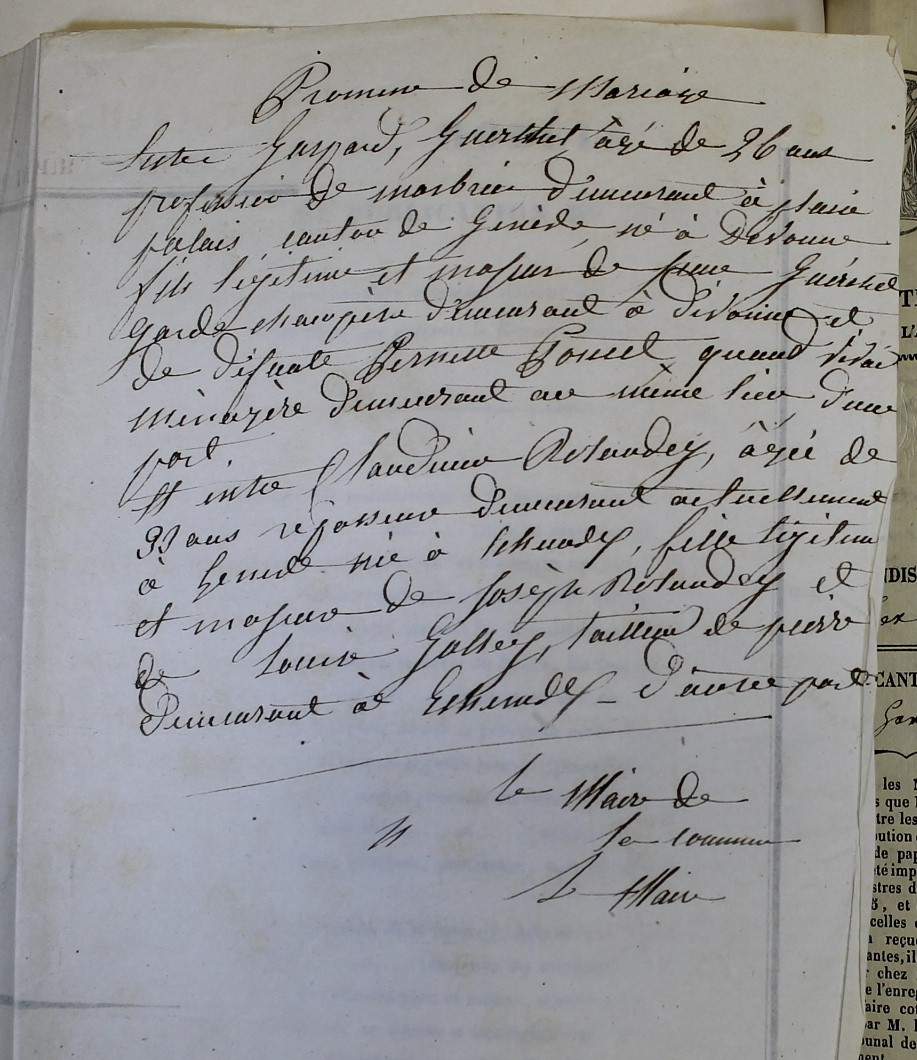 Promesse de Mariage
Entre Gaspard, Guerchet âgé de 26 ans
profession de marbrier demeurant à plain
palais canton de Genève né à Divonne
fils légitime et majeur de Guerchet
garde champêtre demeurant à divonne et
de défunte Pernette Poncet quand vivait
ménagère demeurant au même lieu d'une
part.
Et entre Claudine Rolandey, âgée de
ans repasseuse demeurant actuellement
à Genève née à , fille légitime
et majeure de Joseph Rolandey et
de Louise , tailleur de pierre
Demeurant à - d'autre part
le Maire de
la commune
Le Maire
TI
L'A
NDIS
ex
CANT
les
s que
tre les
bution
de pap
été imp
stres d
5, et
celles
reçu
antes, il
chez
e l'enreg
faire co
par M.
bunal de
ment